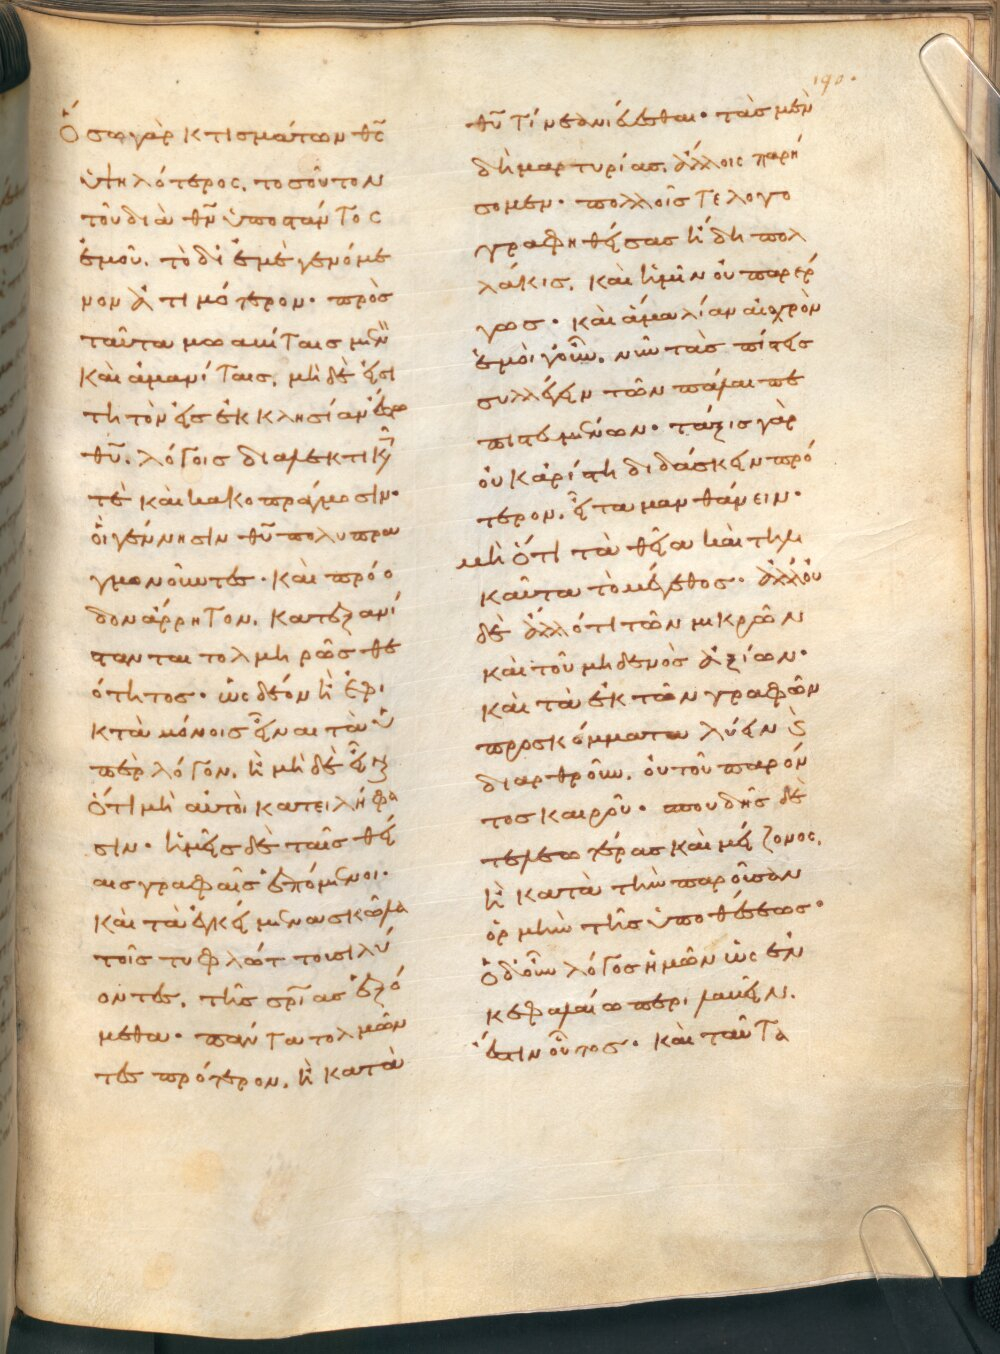 190.
Ὅσω γὰρ κτισμάτων θς
ὑψηλότερος, τοσοῦτον
τοῦ διὰ θν ὑποστάντος
ἐμοῦ. τὸ δι' ἐμὲ γενόμε
νον ἀτιμότερον· πρὸς
ταῦτα μωμᾶνται μὲν
καὶ
μὴ δὲ
τῆ τὸν εἰς ἐκκλησίαν
θυ. λόγοις διαλεκτικοῖς
τὲ καὶ κακοπράγμοσιν·
οἱ γέννησιν θυ πολυπρα
γμονοῦντες· καὶ πρόο
δον ἄρρητον, κατεξανί
στανται τολμηρῶς θε
ότητος· ὡς δέον ἢ ἐφι
κτὰ μόνοις εἶναι τὰ ὑ
πὲρ λόγον, ἢ μὴ δὲ εἶναι
ὅτι μὴ αὐτοὶ κατειλήφα
σιν· ἡμεῖς δὲ ταῖς θεί
αις γραφαῖς ἑπόμενοι·
καὶ τὰ ἐγκείμενα σκῶλα
τοῖς τυφλώττουσι λύ
οντες, τῆς σρίας ἑξό
μεθα· πάντα τολμῶν
τες πρότερον, ἢ κατὰ
θυ τί νεανιεύεσθαι· τὰς μὲν
δὴ μαρτυρίας, ἄλλοις παρή
σομεν· πολλοῖς τε λογο
γραφηθείσας ἤδη πολ
λάκις, καὶ ἡμῖν οὐ παρέρ
γως· καὶ ἅμα λίαν αἰσχρὸν
ἐμοὶ γοῦν, νῦν τὰς πίστεις
συλλέγειν τῶν πάλαι πε
πιστευμένων· τάξις γὰρ
οὐκ ἀρίστη διδάσκειν πρό
τερον, εἶτα μανθάνειν·
μὴ ὅτι τὰ θεῖα καὶ τηλι
καῦτα τὸ μέγεθος· ἀλλ' οὐ
δὲ ἄλλό τι τῶν μικρῶν
καὶ τοῦ μηδενὸς ἀξίων·
καὶ τὰ ἐκ τῶν γραφῶν
προσκόμματα λύειν
διαρθροῦν, οὐ τοῦ παρόν
τος καιροῦ· σπουδῆς δὲ
τελεωτέρας καὶ μείζονος,
ἢ κατὰ τὴν παροῦσαν
ὁρμὴν τῆς ὑποθέσεως·
ὁ δ' οὖν λόγος ἡμῶν ὡς ἐν
κεφαλαίω περιλαβεῖν.
ἐστὶν οὗτος· καὶ ταῦτα